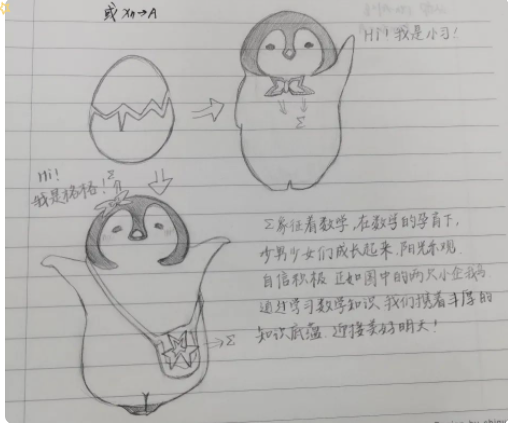 或 Xn→A
Hi! 我是小习!
Σ
Hi!
我是格格!
Σ
Σ象征着数学,在数学的孕育下,
少男少女们成长起来,阳光乐观
自信积极 正如图中的两只小企鹅
通过学习数学知识 我们携着丰厚的
知识底蕴 迎接美好明天!
Σ